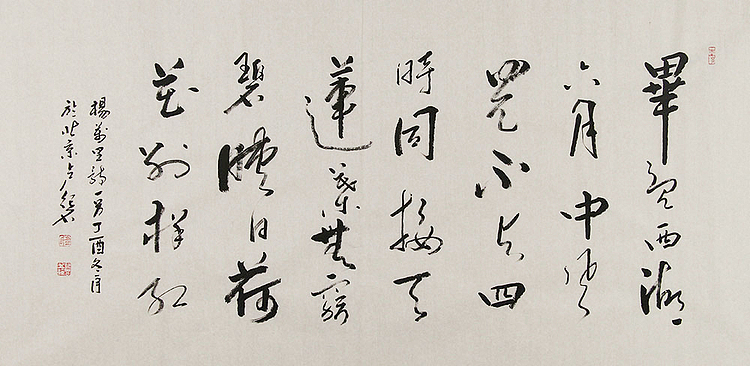 畢竟西湖
六月中風
光不与四
時同接天
蓮葉無窮
碧映日荷
花別樣紅
楊萬里詩一首丁酉冬月
於北京